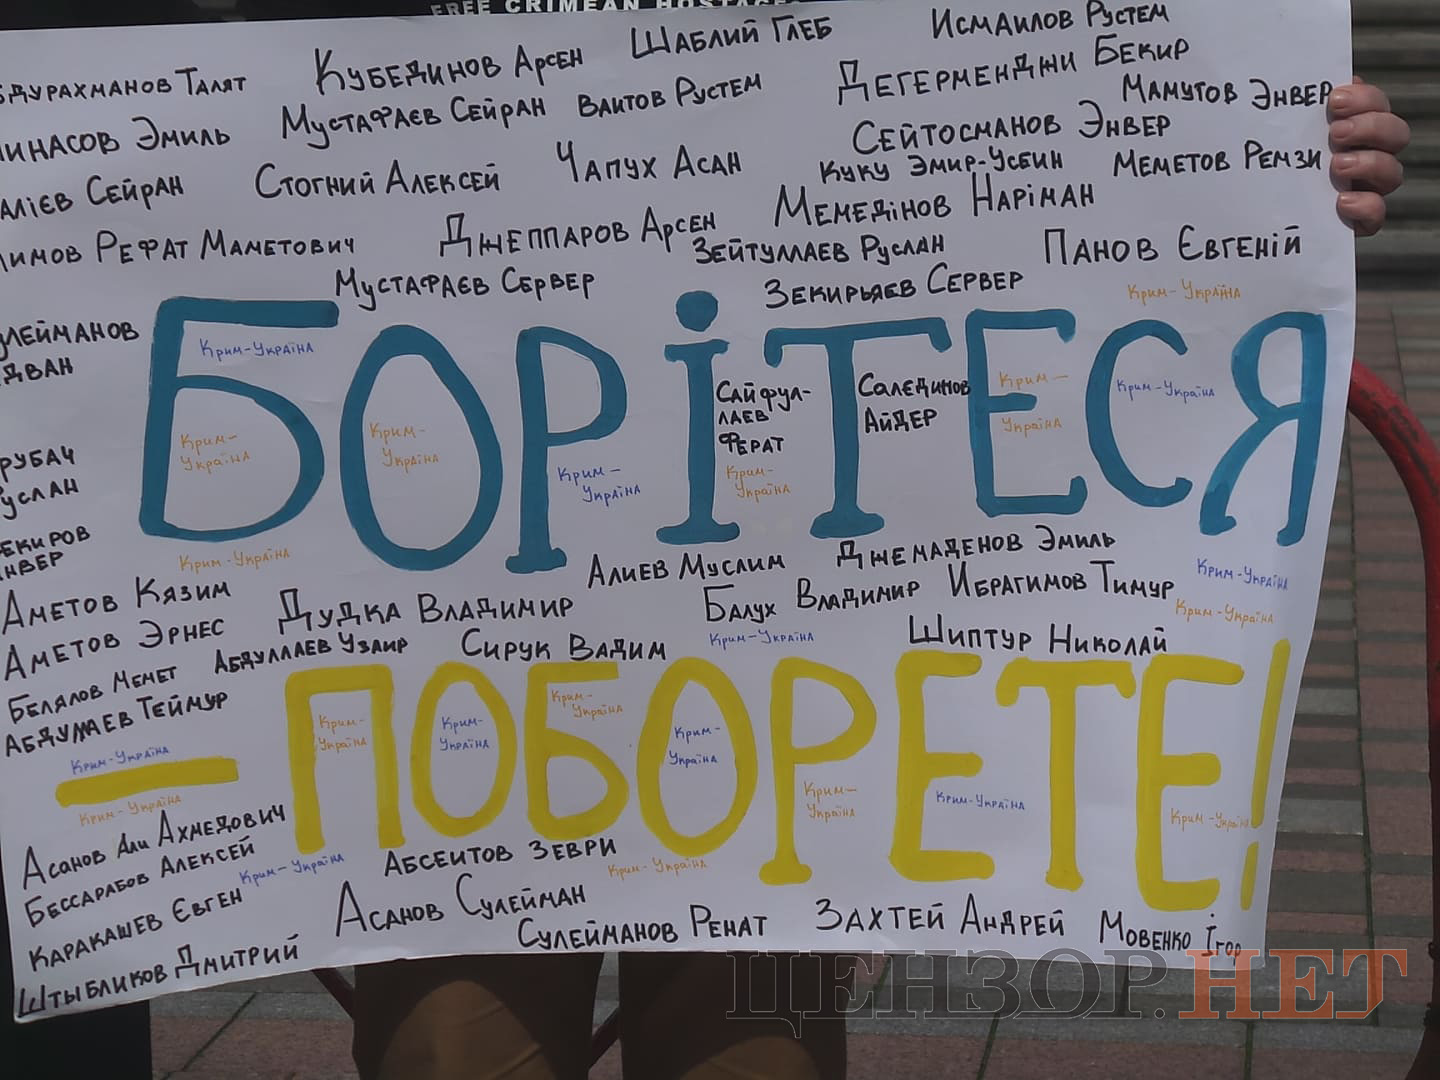 FREE CRIMEAN HOSTAGES
Исмаилов Рустем
Шаблий Глеб
Кубединов Арсен
Дегерменджи Бекир
Талят
Мустафаєв Сейран
Ваитов Рустем
Мамутов Энвер
Эмиль
Сейтосманов Энвер
Чапух Асан
Куку Эмир-Усеин
Меметов Ремзи
Сейран
Стогний Алексей
Мемедінов Наріман
Рефат Маметович
Джеппаров Арсен
Зейтуллаев Руслан
Панов Євгеній
Мустафаєв Сервер
Зекирьяев Сервер
Крим-Україна
БОРІТЕСЯ
Крим-Україна
Сайфул-
лаев
Ферат
Саледінов
Айдер
Крим-
Україна
Крим-Україна
Крим-
Україна
Крим-
Україна
Крим-
Україна
Крим-
Україна
Крим-Україна
Алиев Муслим
Джемаденов Эмиль
Крим-Україна
Аметов Кязим
Дудка Владимир
Балух Владимир
Ибрагимов Тимур
Крим-Україна
Аметов Эрнес
Абдуллаев Узаир
Сирук Вадим
Крим-Україна
Шиптур Николай
Белялов Мемет
Абдулаев Теймур
Крим-Україна
– ПОБОРЕТЕ!
Крим-
Україна
Крим-
Україна
Крим-
Україна
Крим-
Україна
Крим-
Україна
Крим-Україна
Крим-Україна
Крим-Україна
Асанов Али Ахмедович
Бессарабов Алексей
Крим-Україна
Абсеитов Зеври
Крим-Україна
Каракашев Євген
Асанов Сулейман
Сулейманов Ренат
Захтей Андрей
Мовенко Ігор
Штыбликов Дмитрий
ЦЕНЗОР.НЕТ